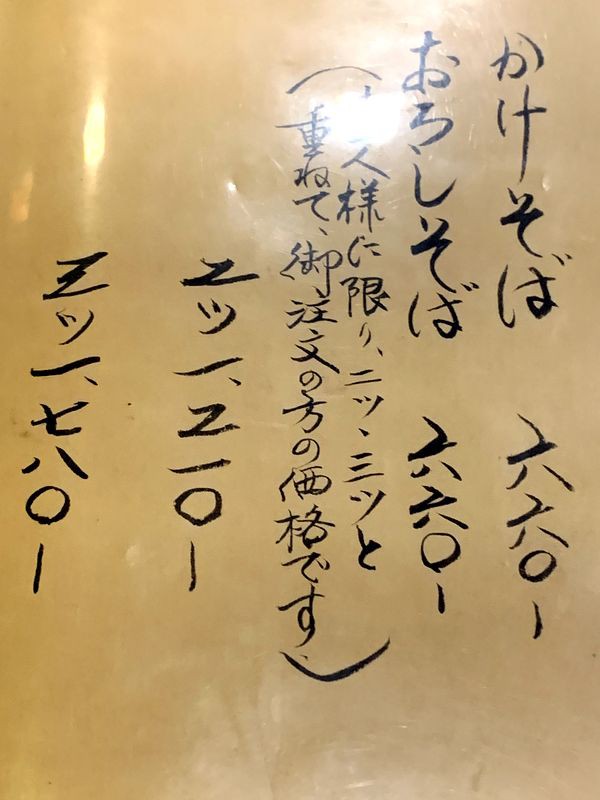 かけそば 六六〇ー
おろしそば 六六〇ー
(人様に限り、二ツ、三ツと
重ねて、御注文の方の価格です。)
二ツ 一、二一〇ー
三ツ 一、七八〇ー